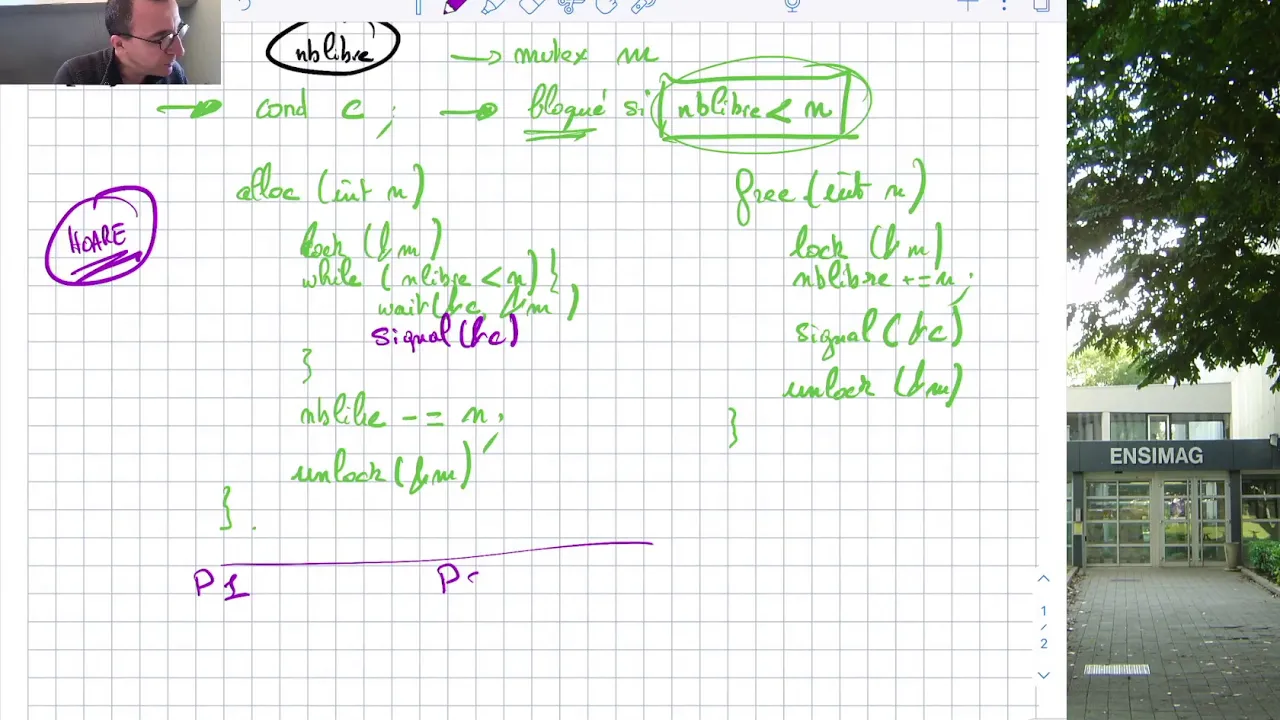 nblibre → mutex m
→ cond c ; → bloqué si nblibre < n
HOARE
alloc (int n)
lock (&m)
while (nlibre < n) {
wait(&c, &m)
signal(&c)
}
nblibre -= n;
unlock(&m)
}.
free (int n)
lock (&m)
nblibre += n;
signal (&c)
unlock (&m)
}
P1 P
ENSIMAG
1
/
2